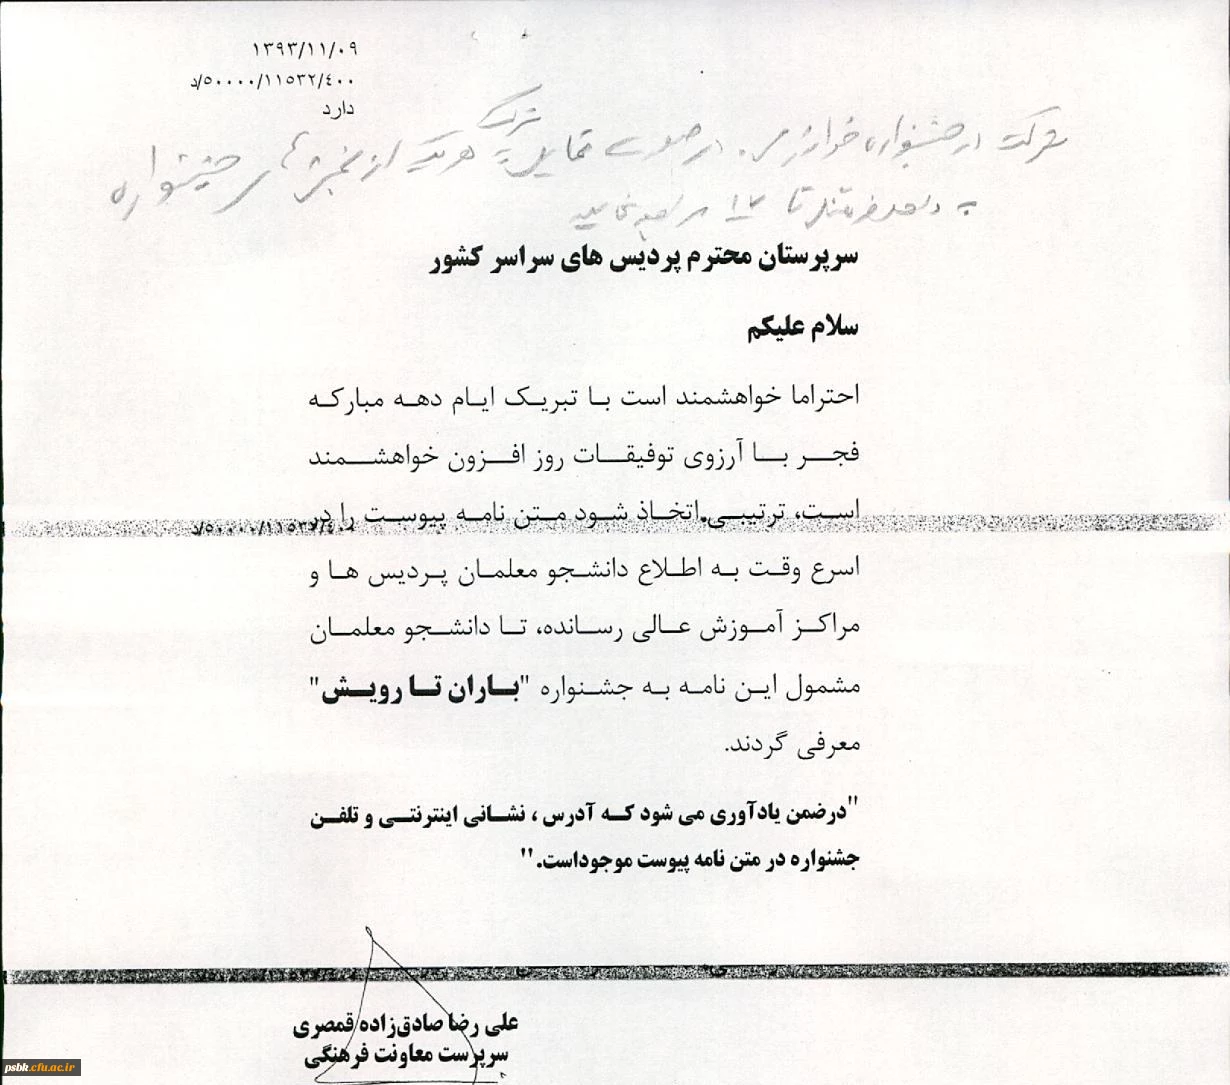 ۱۳۹۳/۱۱/۰۹
۵۰۰۰۰/۱۱۵۳۲/۴۰۰/د
دارد
شرکت در جشنواره خوارزمی. در صورت تمایل به شرکت هریک از بخش های جشنواره
به تا ۱۲ نمایید
سرپرستان محترم پردیس های سراسر کشور
سلام علیکم
احتراما خواهشمند است با تبریک ایام دهه مبارکه
فجر با آرزوی توفیقات روز افزون خواهشمند
است، ترتیبی اتخاذ شود متن نامه پیوست را در
۵۰۰۰۰/۱۱۵۳۲/۴۰۰/د
اسرع وقت به اطلاع دانشجو معلمان پردیس ها و
مراکز آموزش عالی رسانده، تا دانشجو معلمان
مشمول این نامه به جشنواره "باران تا رویش"
معرفی گردند.
"درضمن یادآوری می شود که آدرس ، نشانی اینترنتی و تلفن
جشنواره در متن نامه پیوست موجوداست."
علی رضا صادق‌زاده قمصری
سرپرست معاونت فرهنگی
psbk.cfu.ac.ir